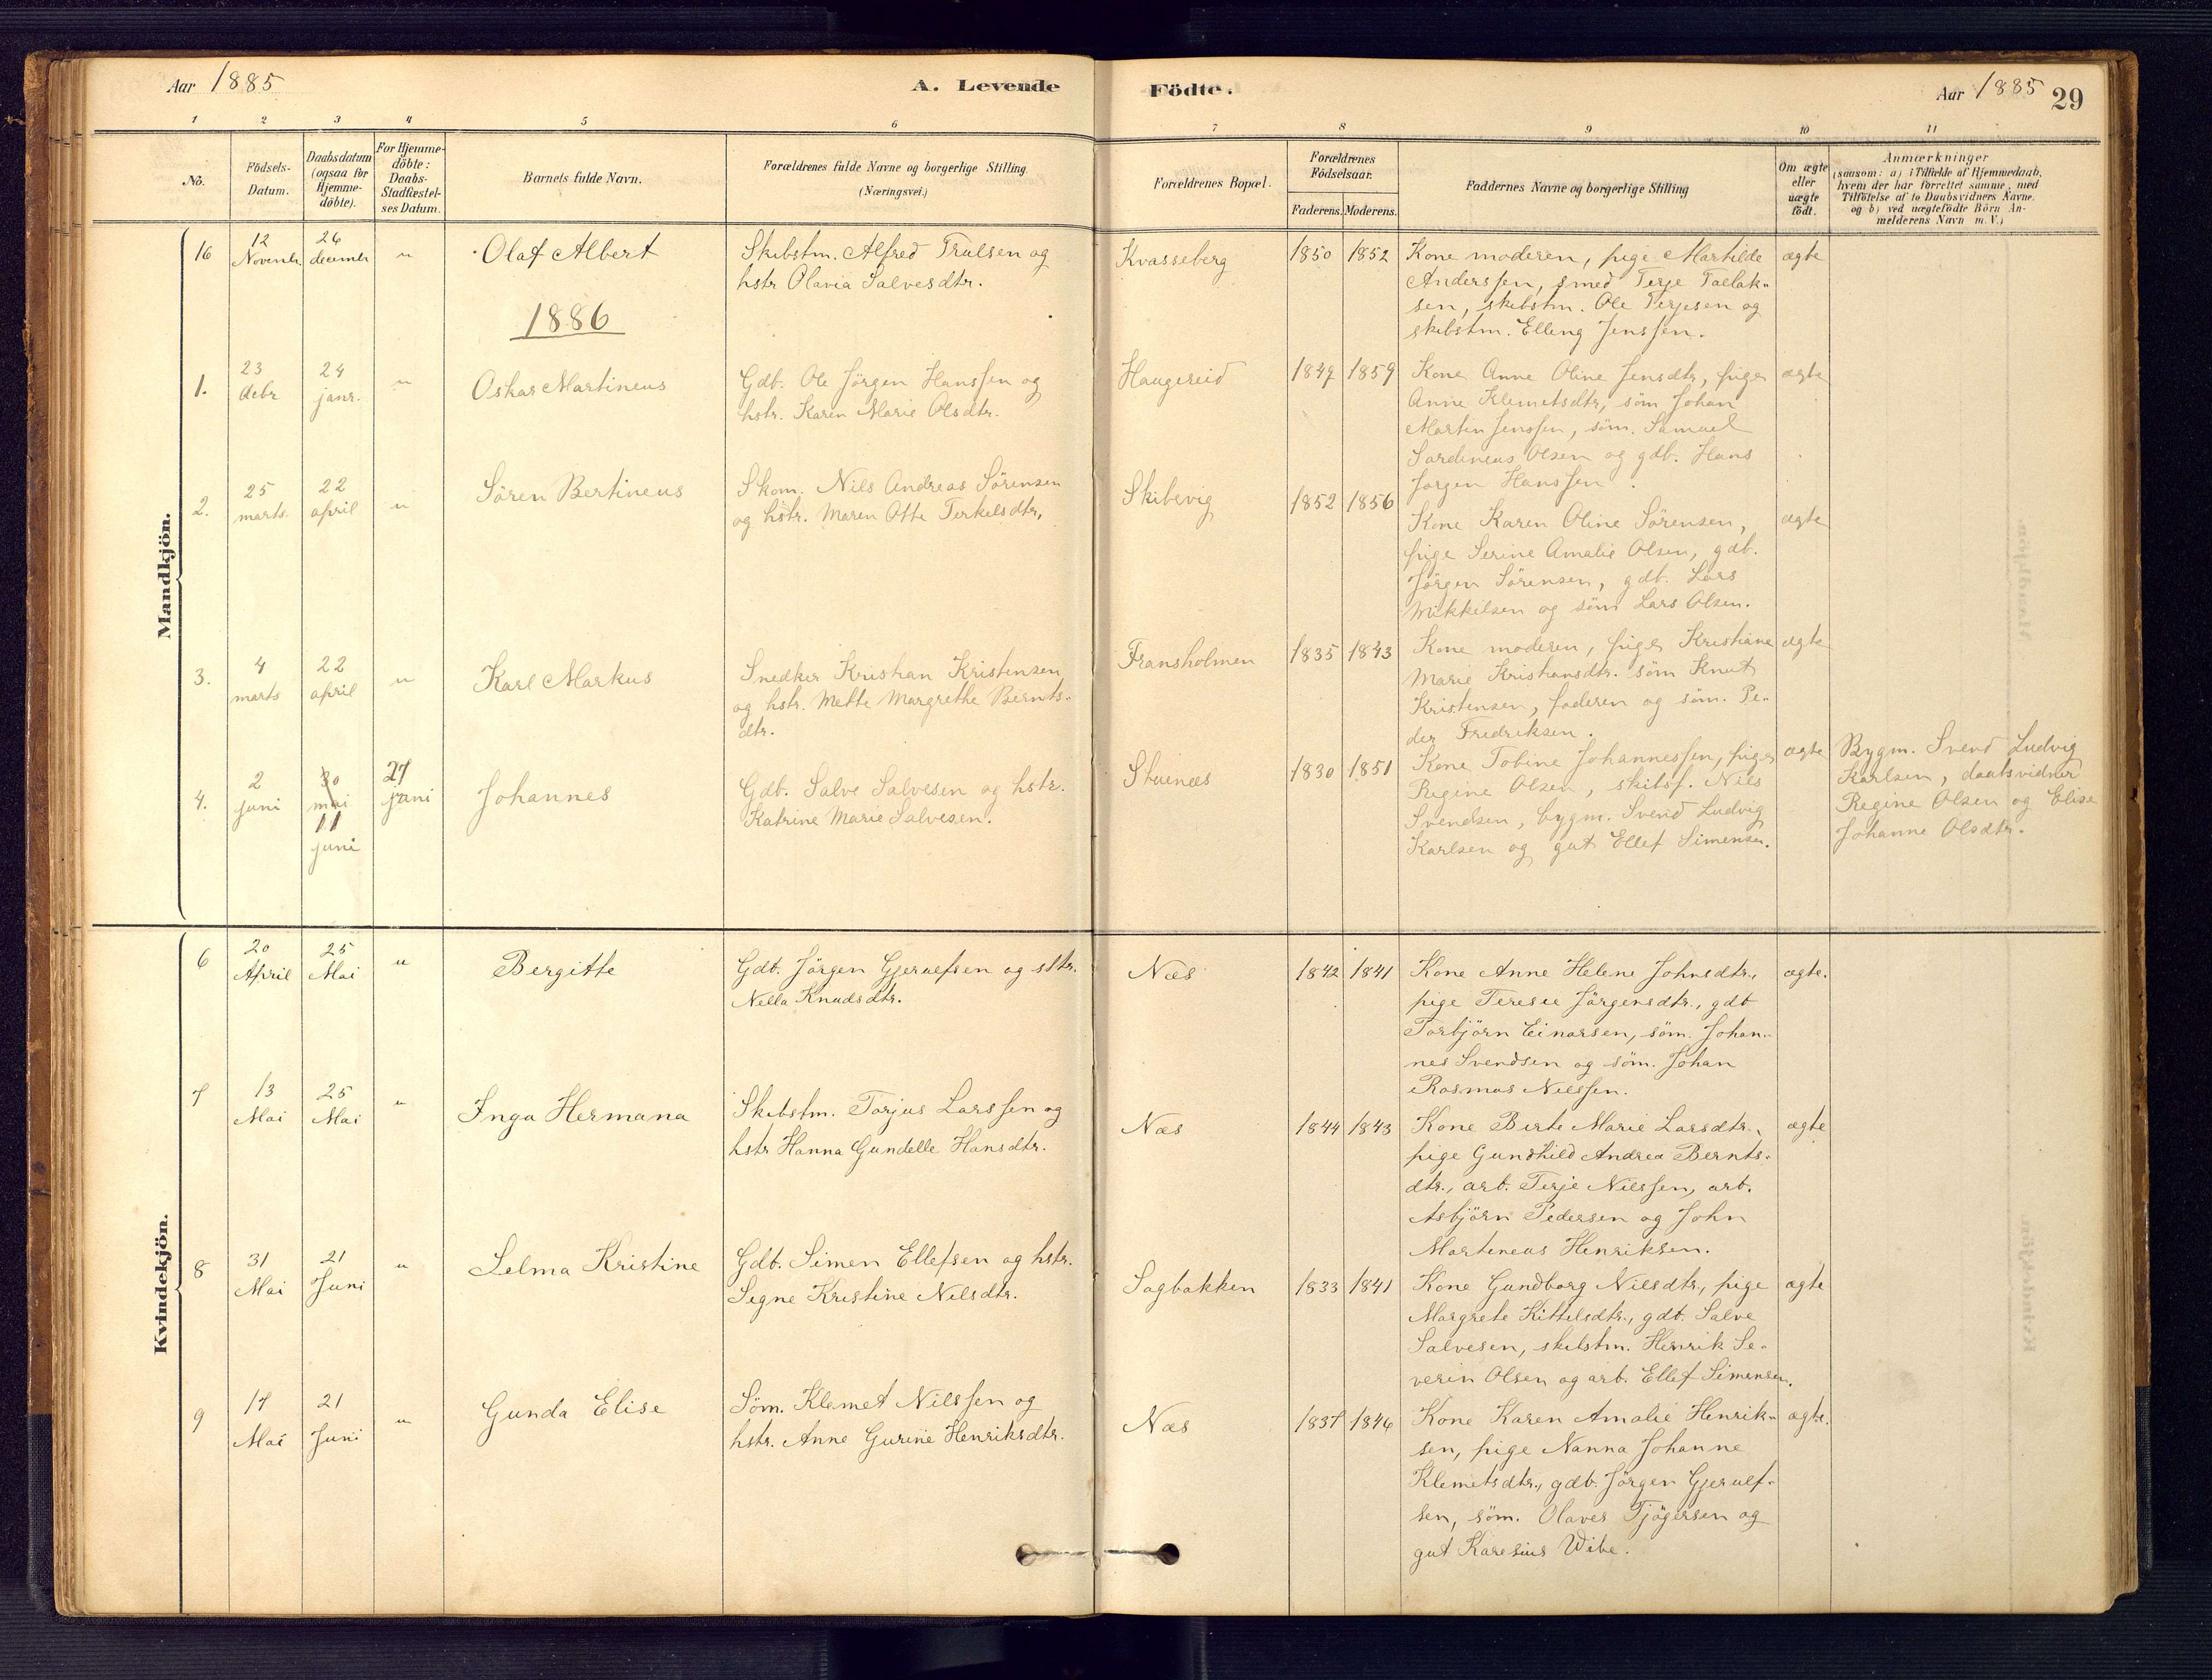 Aar 1885
A. Levende
Födte.
Aar 1885
29
1 2 3 4 5 6 7 8 9 10 11
No.
Födsels-
Datum.
Daabsdatum
(ogsaa for
Hjemme-
döbte).
For Hjemme-
döbte:
Daabs-
Stadfæstel-
ses Datum.
Barnets fulde Navn.
Forældrenes fulde Navne og borgerlige Stilling
(Næringsvei.)
Forældrenes Bopæl.
Forældrenes
Födselsaar.
Faderens. Moderens.
Faddernes Navne og borgerlige Stilling
Om ægte
eller
uægte
födt.
Anmærkninger
(saasom: a) i Tilfælde af Hjemmedaab,
hvem der har forrettet samme, med
Tilföielse af to Daabsvidners Navne,
og b) ved uægtefödte Börn An-
melderens Navn m. V.)
Mandkjön.
16
12
Novembr.
26
decembr
"
Olaf Albert
Skibstm. Alfred Trulsen og
hstr. Olavia Salvesdtr.
Kvasseberg
1850 1852
Kone moderen, pige Martilde
Anderssen, smed Terje Tallak-
sen, skibstm. Ole Terjesen og
skibstm. Elling Jenssen.
ægte
1886
1.
23
debr
24
janr.
"
Oskar Martineus
Gdb. Ole Jörgen Hanssen og
hstr. Karen Marie Olsdtr.
Haugereid
1849 1859
Kone Anne Oline Jensdtr, pige
Anne Klemetsdtr, söm Johan
Martin Jenssen, söm. Samuel
Sardineus Olsen og gdb. Hans
Jørgen Hanssen.
ægte
2.
25
marts
22
april
"
Sören Bertineus
Skom. Nils Andreas Sörensen
og hstr. Maren Otte Terkelsdtr,
Skibevig
1852 1856
Kone Karen Oline Sörensen,
pige Serine Amalie Olsen, gdb.
Jörgen Sörensen, gdb. Lars
Mikkelsen og söm Lars Olsen.
ægte
3.
4
marts
22
april
"
Karl Markus
Snedker Kristian Kristensen
og hstr. Mette Margrethe Bernts-
dtr.
Fransholmen
1835 1843
Kone moderen, pige Kristiane
Marie Kristiansdtr. söm Knut
Kristensen, faderen og söm. Pe-
der Fredriksen.
ægte
4.
2
juni
30
mai
11
juni
27
juni
Johannes
Gdb. Salve Salvesen og hstr.
Katrine Marie Salvesen.
Stuenæs
1830 1851
Kone Tobine Johannessen, pige
Regine Olsen, skibsf. Nils
Svendsen, bygm. Svend Ludvig
Karlsen og gut Ellef Simensen.
ægte
Bygm. Svend Ludvig
Karlsen, daabsvidner
Regine Olsen og Elise
Johanne Olsdtr.
Kvindekjön.
6
20
April
25
Mai
"
Bergitte
Gdb. Jörgen Gjerulfsen og hstr.
Nella Knudsdtr.
Næs
1842 1841
Kone Anne Helene Johnsdtr.,
pige Terese Jörgensdtr., gdb
Torbjörn Einarsen, söm. Johan-
nes Svendsen og söm. Johan
Rasmus Nilssen.
ægte.
7
13
Mai
25
Mai
"
Inga Hermana
Skibstm. Torjus Larssen og
hstr Hanna Gundelle Hansdtr.
Næs
1844 1843
Kone Birte Marie Larsdtr.,
pige Gundhild Andrea Bernts-
dtr., arb. Terje Nilssen, arb.
Asbjörn Pedersen og John
Martineus Henriksen.
ægte
8
31
Mai
21
Juni
"
Selma Kristine
Gdb. Simen Ellefsen og hstr.
Signe Kristine Nilsdtr.
Sagbakken
1833 1841
Kone Gundborg Nilsdtr., pige
Margrete Kittilsdtr., gdb. Salve
Salvesen, skibstm. Henrik Se-
verin Olsen og arb. Ellef Simensen.
ægte
9
17
Mai
21
Juni
"
Gunda Elise
Söm. Klemet Nilssen og
hstr. Anne Gurine Henriksdtr.
Næs
1837 1846
Kone Karen Amalie Henrik-
sen, pige Nanna Johanne
Klemetsdtr., gdb. Jörgen Gjerulf-
sen, söm. Olaves Tjögersen og
gut Karesius Wibe.
ægte.